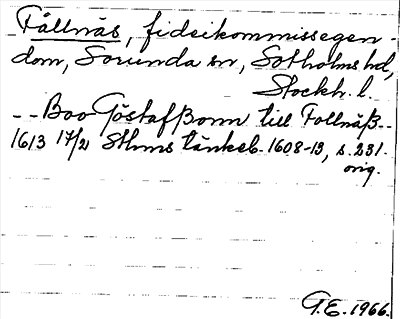 Fållnäs, fideikommissegen-
dom, Sorunda sn, Sotholms hd,
Stockh. l.
-- Boo Göstafßonn till Follnäß --
1613 17/2 Sthms tänkeb. 1608-13, s. 231.
orig.
G.E. 1966.